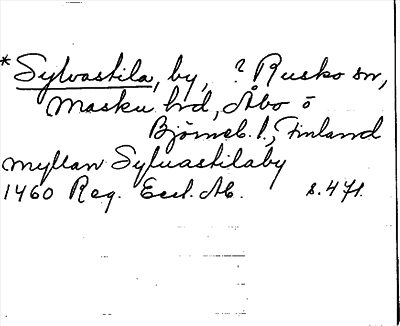 *Sylvastila, by, ? Rusko sn,
Masku hd, Åbo o
Björneb. l., Finland
myllan Sylvastilaby
1460 Reg. Eccl. Ab. s. 471.